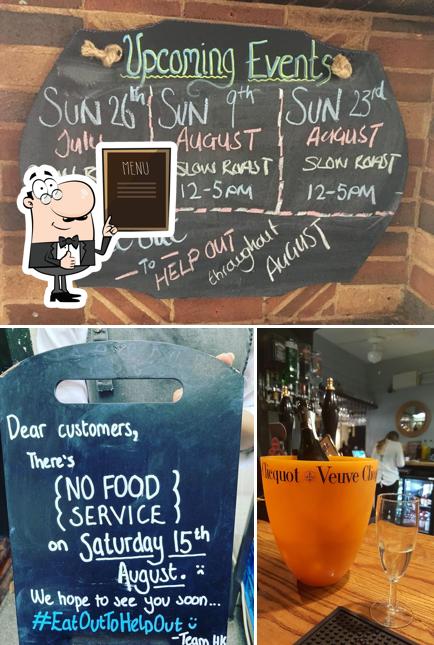 Upcoming Events
SUN 26th SUN 9th SUN 23rd
July AUGUST AUGUST
SLOW ROAST SLOW ROAST
12-5PM 12-5PM
MENU
To HELP OUT
throughout
AUGUST
Dear customers,
There's
{NO FOOD
SERVICE}
on Saturday 15th
August.
We hope to see you soon...
#EatOutToHelpOut
-Team HK
Clicquot Veuve Clic